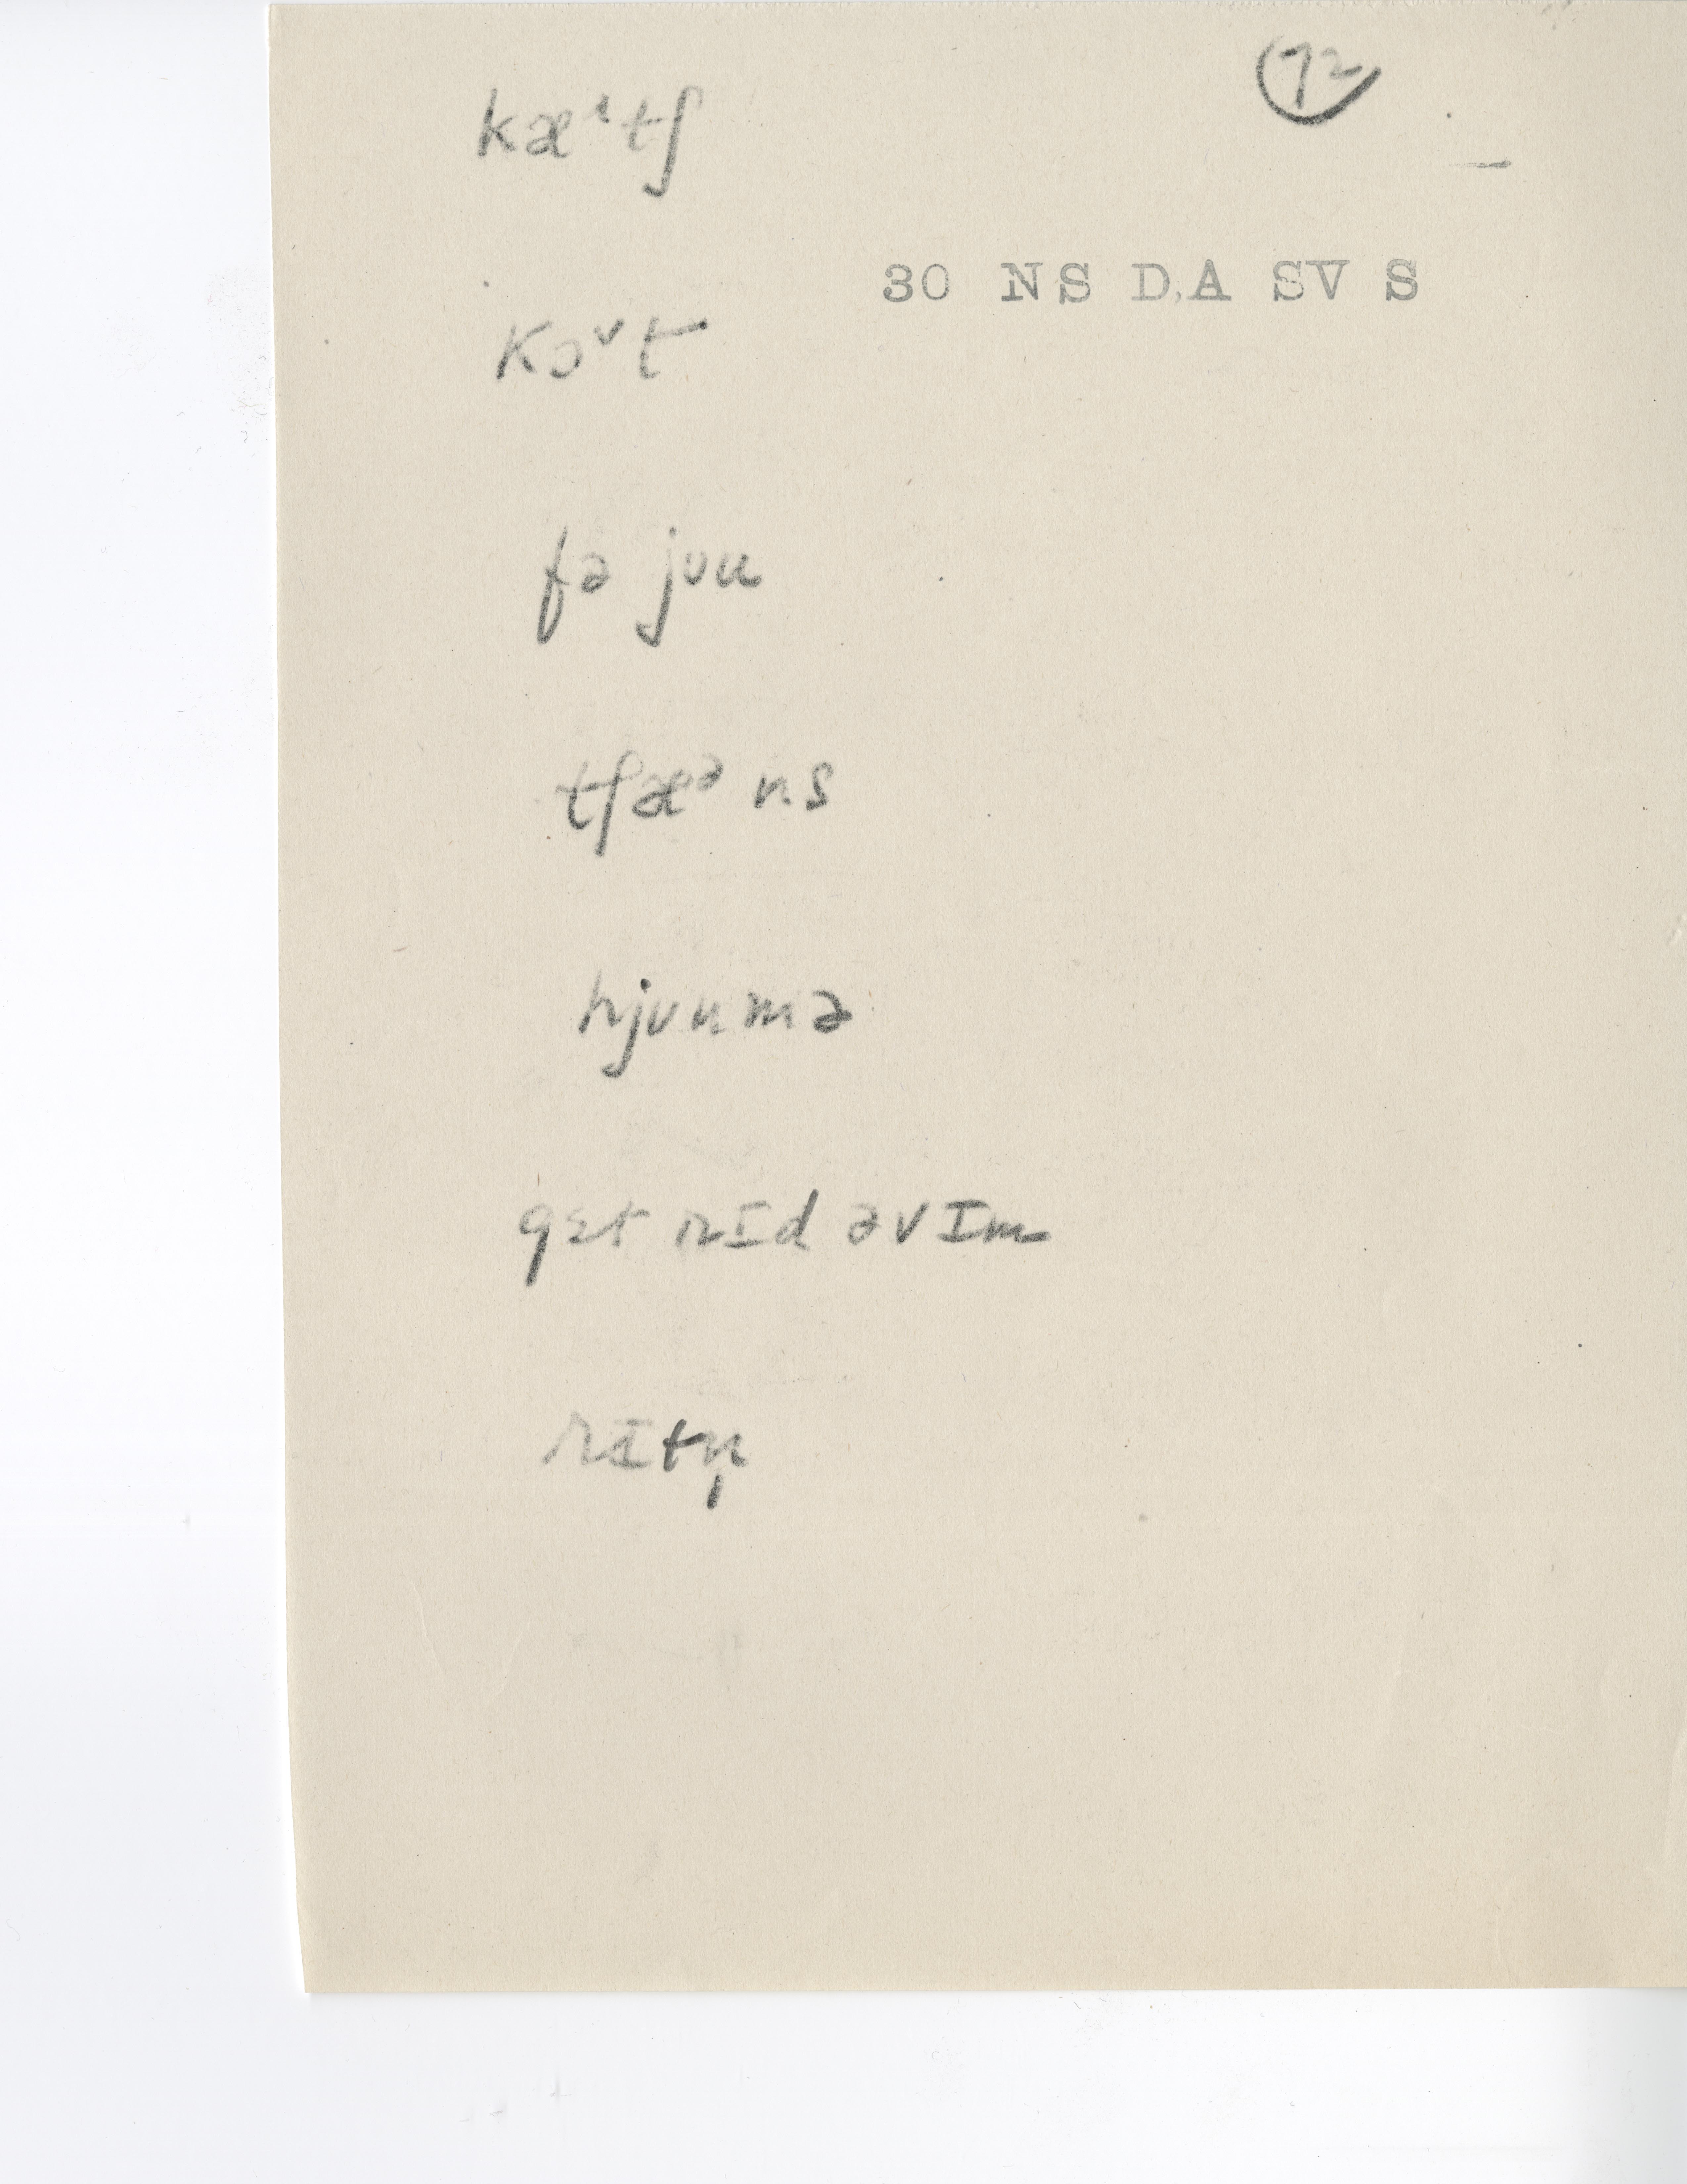 72
kæᶦtʃ
30 NS D,A SV S
kɔᵛt
fə jʊu
tʃæᵊns
hjʊumə
gɛt rɪd əvɪm
rɪtn̩